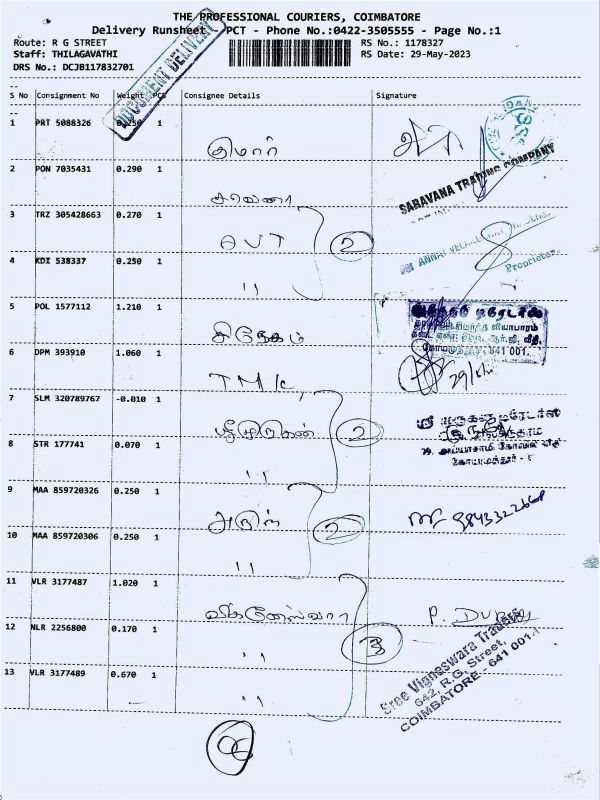 THE PROFESSIONAL COURIERS, COIMBATORE
Delivery Runsheet - PCT - Phone No.:0422-3505555 - Page No.:1
Route: R G STREET
RS No.: 1178327
Staff: THILAGAVATHI
RS Date: 29-May-2023
DRS No.: DCJB117832701
DOCUMENT DELIVERY
S No Consignment No Weight PCS Consignee Details Signature
1 PRT 5088326 0.250 1 குமார்
2 PON 7035431 0.290 1 சரவணா
SARAVANA TRADING COMPANY
3 TRZ 305428663 0.270 1 AVT 2
4 KDI 538337 0.250 1 ''
Proprietor
5 POL 1577112 1.210 1 சிநேகம்
கோயமுத்தூர் 641 001.
6 DPM 393910 1.060 1 TMK
7 SLM 320789767 -0.010 1 ஸ்ரீமுருகன் 2
8 STR 177741 0.070 1 ''
9 MAA 859720326 0.250 1 அருள் 2
10 MAA 859720306 0.250 1 ''
11 VLR 3177487 1.020 1 விக்னேஸ்வரா 3
12 NLR 2256800 0.170 1 ''
13 VLR 3177489 0.670 1 ''
Sree Vigneswara Traders
642, R.G. Street,
COIMBATORE - 641 001.